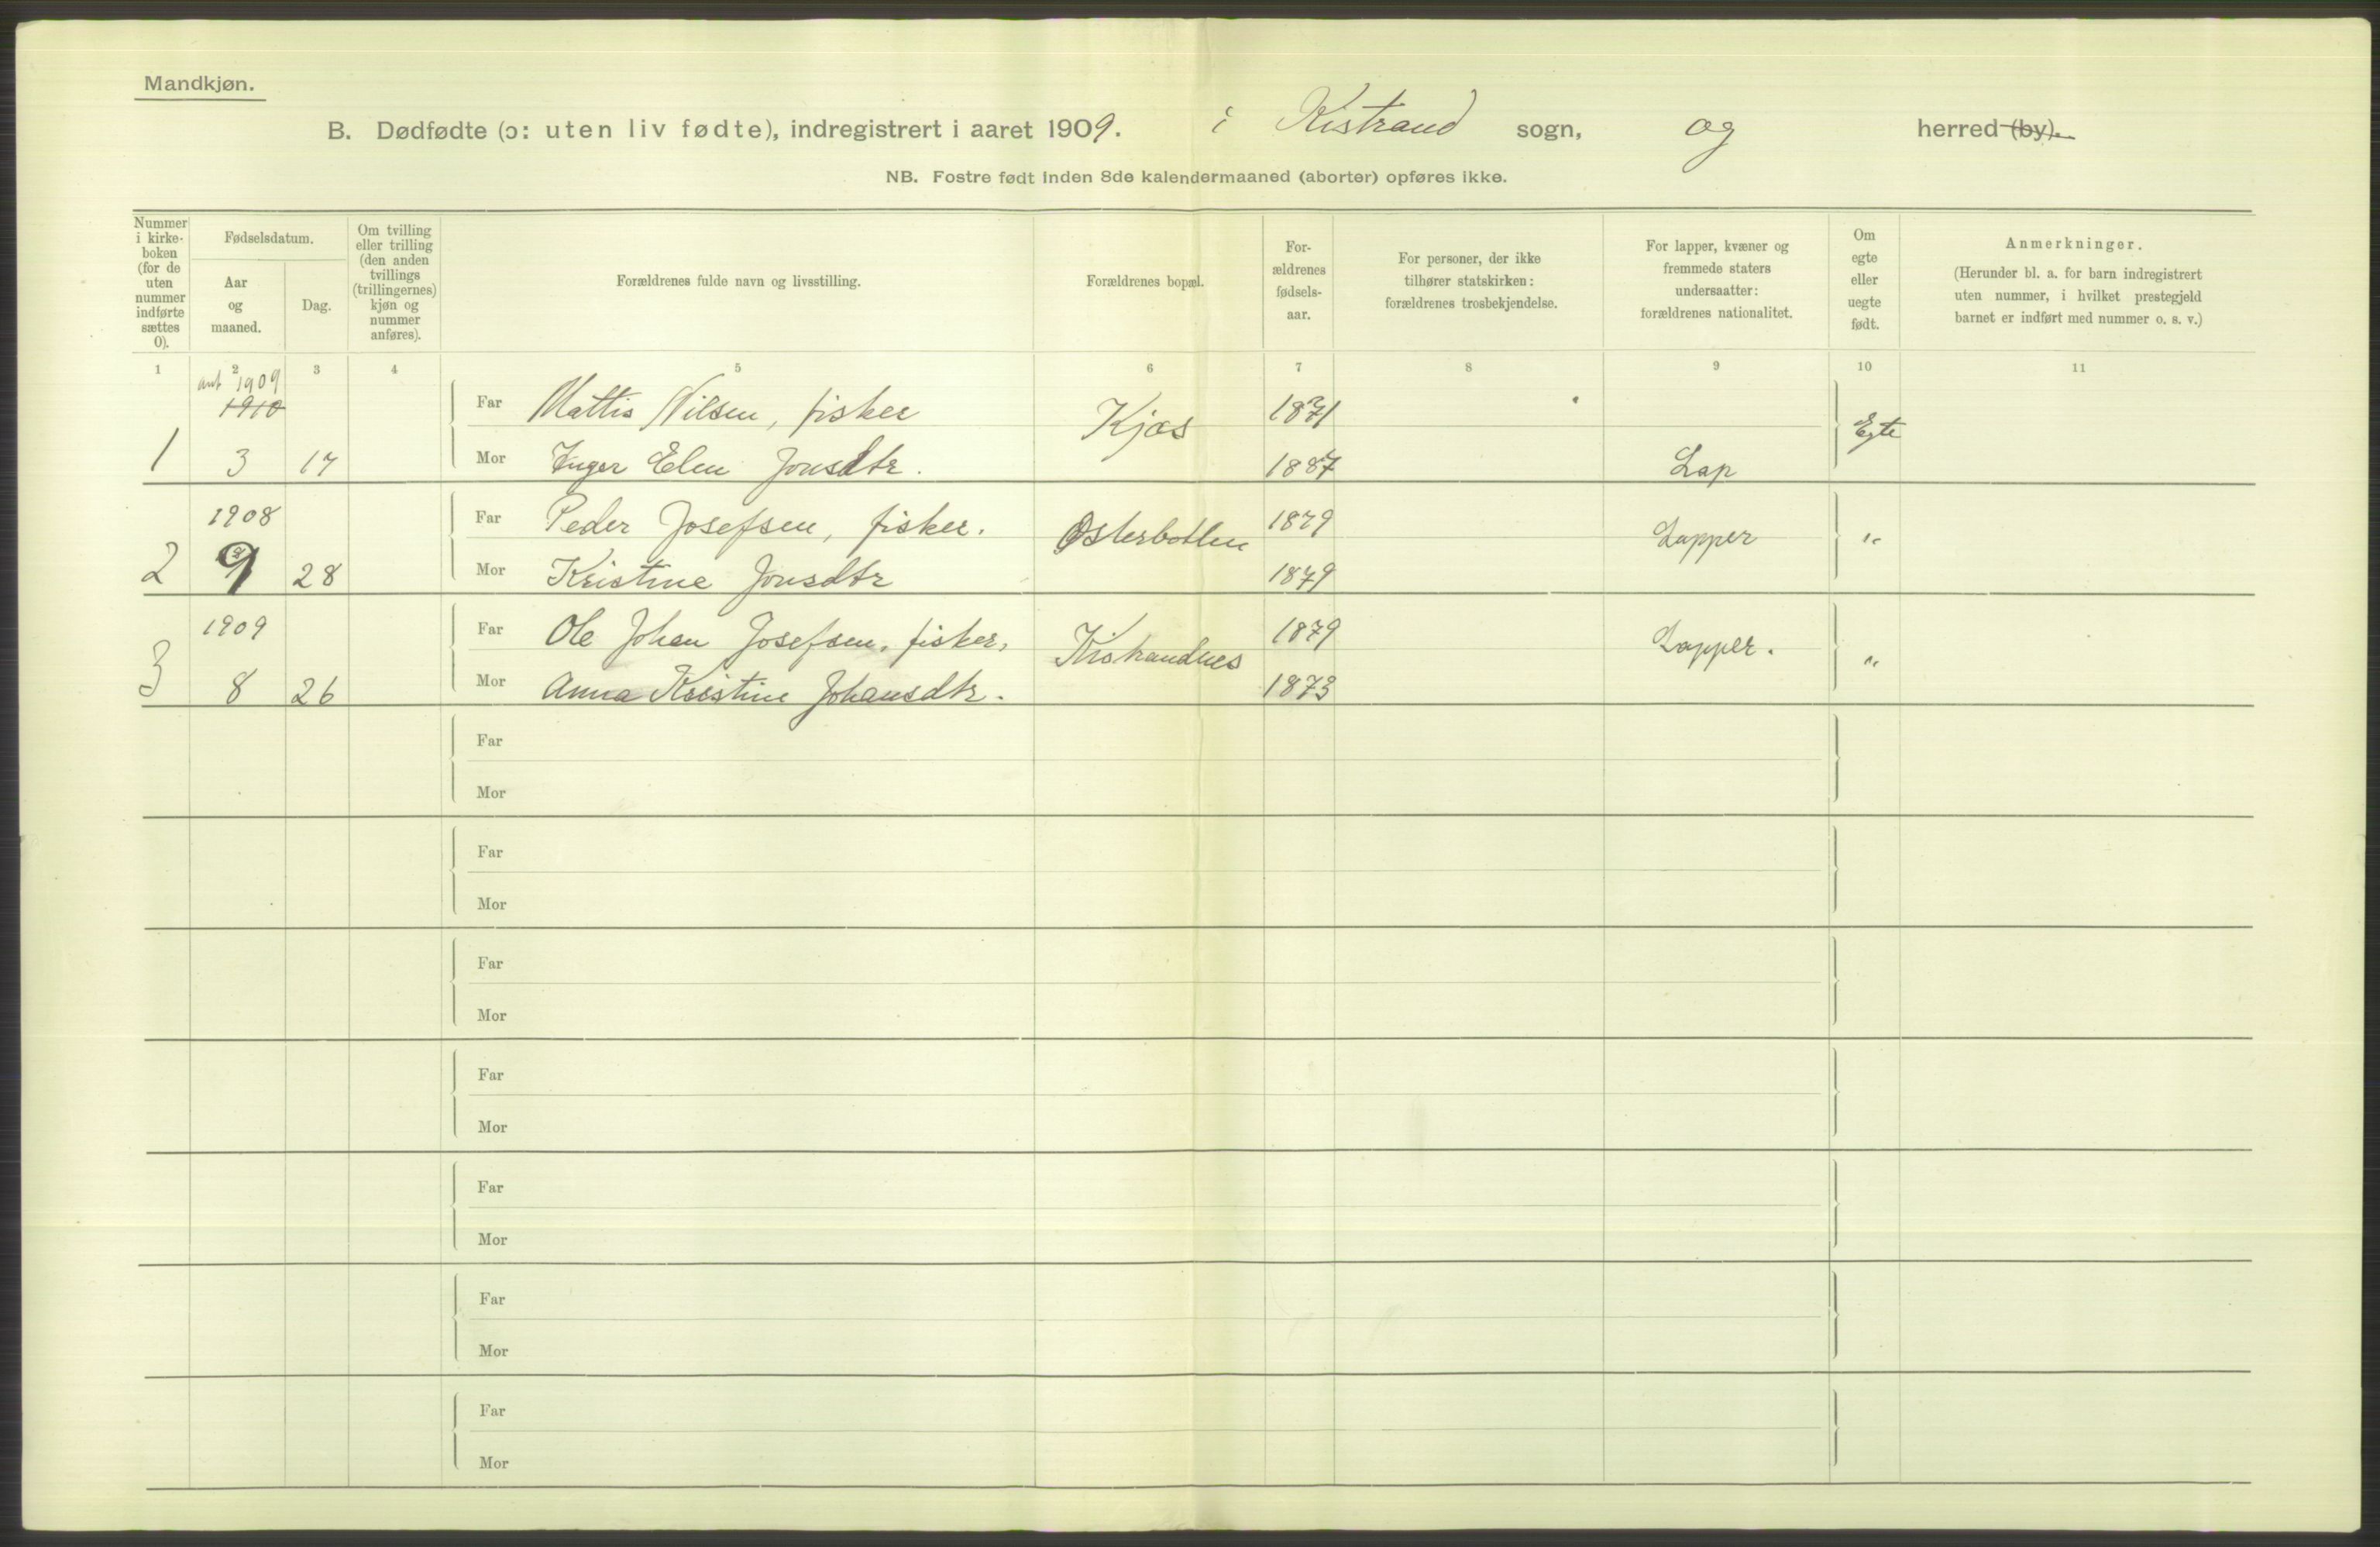 Mandkjøn.
B. Dødfødte (ɔ: uten liv fødte), indregistrert i aaret 1909. i Kistrand sogn, og herred (by).
NB. Fostre født inden 8de kalendermaaned (aborter) opføres ikke.
Nummer i kirke-boken (for de uten nummer indførte sættes 0).
Fødselsdatum.
Aar og maaned.
Dag.
Om tvilling eller trilling (den anden tvillings (trillingernes) kjøn og nummer anføres).
Forældrenes fulde navn og livsstilling.
Forældrenes bopæl.
For-ældrenes fødsels-aar.
For personer, der ikke tilhører statskirken: forældrenes trosbekjendelse.
For lapper, kvæner og fremmede staters undersaatter: forældrenes nationalitet.
Om egte eller uegte født.
Anmerkninger.
(Herunder bl. a. for barn indregistrert uten nummer, i hvilket prestegjeld barnet er indført med nummer o. s. v.)
1 2 3 4 5 6 7 8 9 10 11
ant 1909
1910 Far Mattis Nilsen, fisker Kjæs 1871 Egte
1 3 17 Mor Inger Elen Jonsdtr. 1887 Lap
1908 Far Peder Josefsen, fisker. Østerbotten 1879 Lapper "
2 9 28 Mor Kristine Jonsdtr 1879
1909 Far Ole Johan Josefsen, fisker, Kistrandnes 1879 Lapper. "
3 8 26 Mor Anna Kristine Johansdtr. 1873
Far
Mor
Far
Mor
Far
Mor
Far
Mor
Far
Mor
Far
Mor
Far
Mor